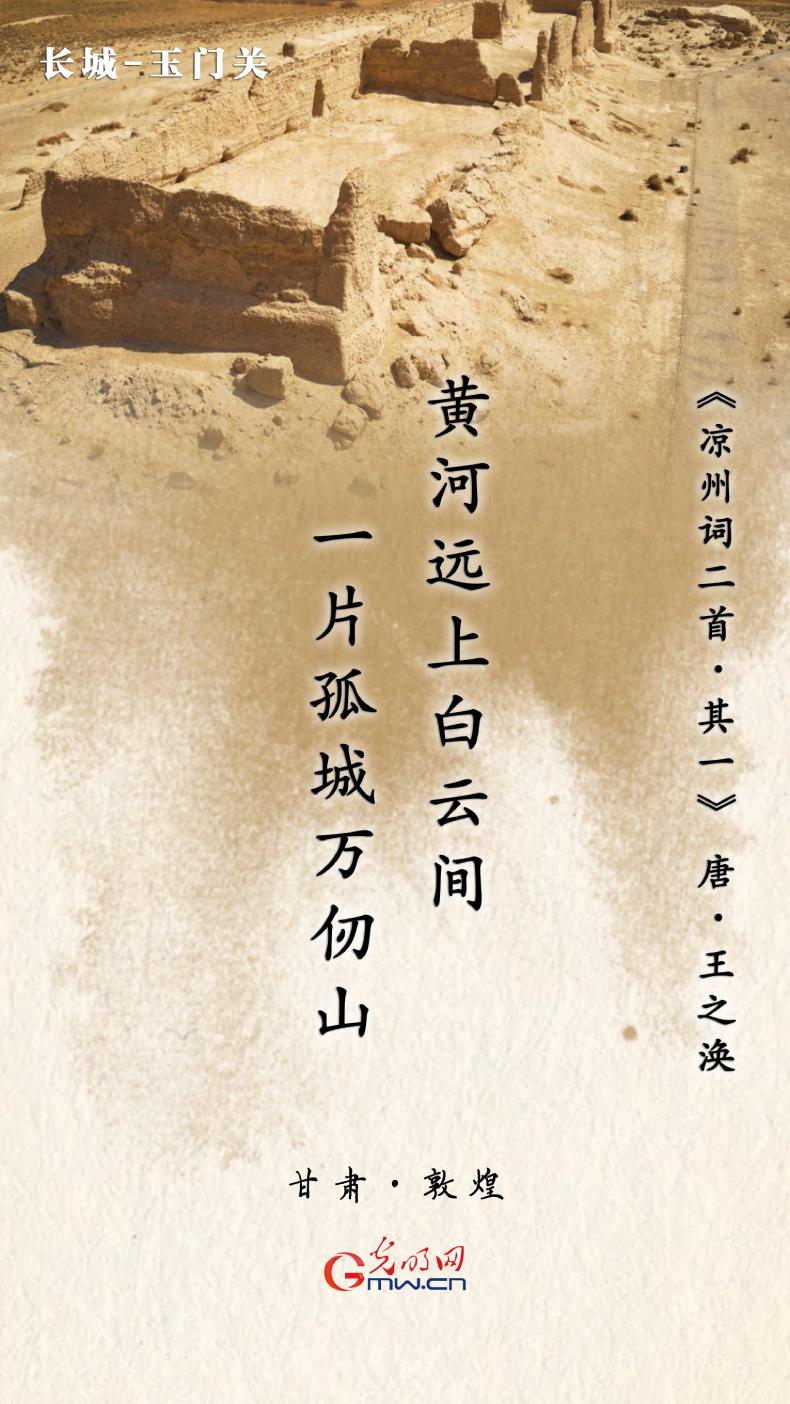 长城-玉门关
《凉州词二首·其一》 唐·王之涣
黄河远上白云间
一片孤城万仞山
甘肃·敦煌
光明网
GMW.CN